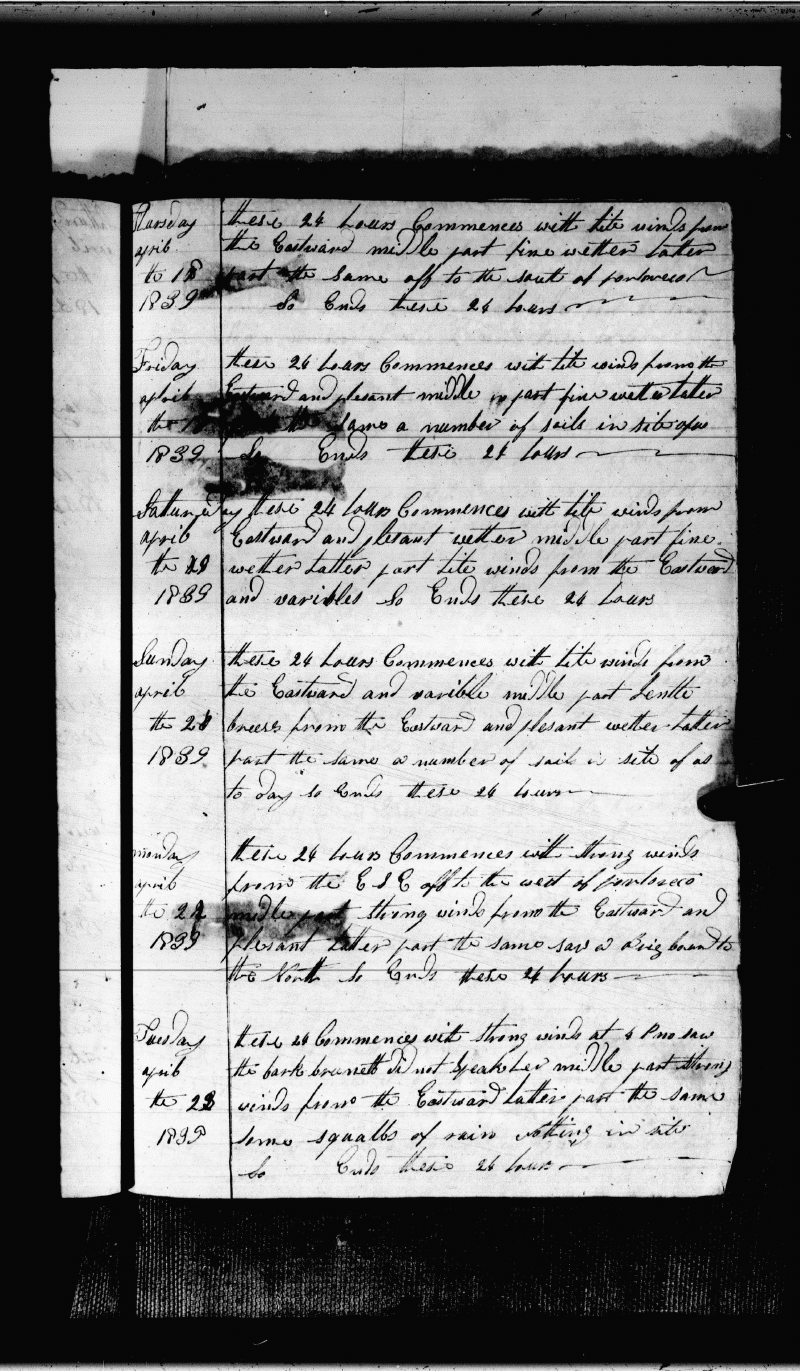 thursday these 24 hours Commences with lite winds from
april the Eastward middle part fine wether latter
the 18 part the same off to the south of portoreco
1839 So Ends these 24 hours
Friday these 24 hours Commences with lite winds from the
aplril Eastward and plesant middle part fine wether latter
the the same a number of sails in site of us
1839 So Ends these 24 hours
Satturday these 24 hours Commences with lite winds from
april Eastward and plesant wether middle part fine
the wether latter part lite winds from the Eastward
1839 and varibles So Ends these 24 hours
Sunday these 24 hours Commences with lite winds from
april the Eastward and varible middle part Jentle
the 21 breese from the Eastward and plesant wether latter
1839 part the same a number of sails in site of us
to day so Ends these 24 hours
monday these 24 hours Commences with strong winds
april from the E S E off to the west of portoreco
the 22 middle part strong winds from the Eastward and
1839 plesant latter part the same saw a Brig bound to
the North So Ends these 24 hours
Tuesday these 24 Commences with strong winds at 4 P m saw
april the bark brunett did not speak her middle part strong
the 23 winds from the Eastward latter part the same
1839 some squalls of rain nothing in site
So Ends these 24 hours